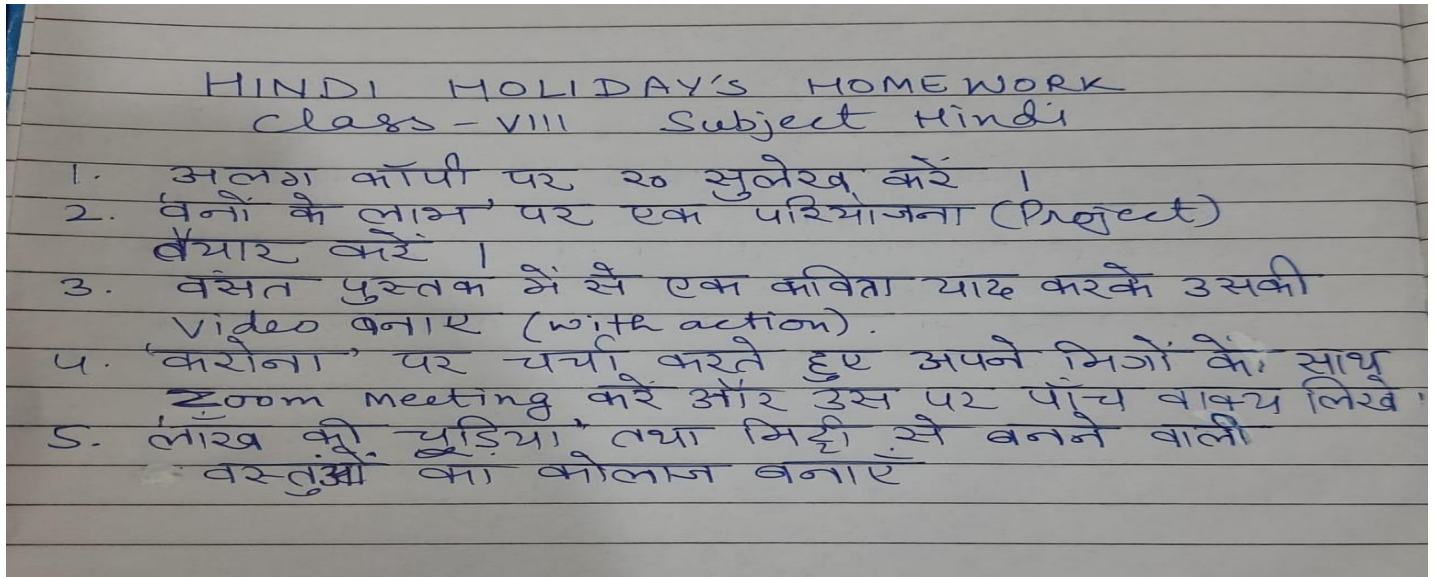 HINDI HOLIDAY'S HOMEWORK
Class - VIII Subject Hindi
1. अलग कॉपी पर २० सुलेख करें ।
2. 'वनों के लाभ' पर एक परियोजना (Project)
तैयार करें ।
3. वसंत पुस्तक में से एक कविता याद करके उसकी
Video बनाए (with action).
4. 'करोना' पर चर्चा करते हुए अपने मित्रों के साथ
Zoom Meeting करें और उस पर पाँच वाक्य लिखे ।
5. 'लाँख की चूड़िया' तथा मिट्टी से बनने वाली
वस्तुओं का कोलाज बनाएँ